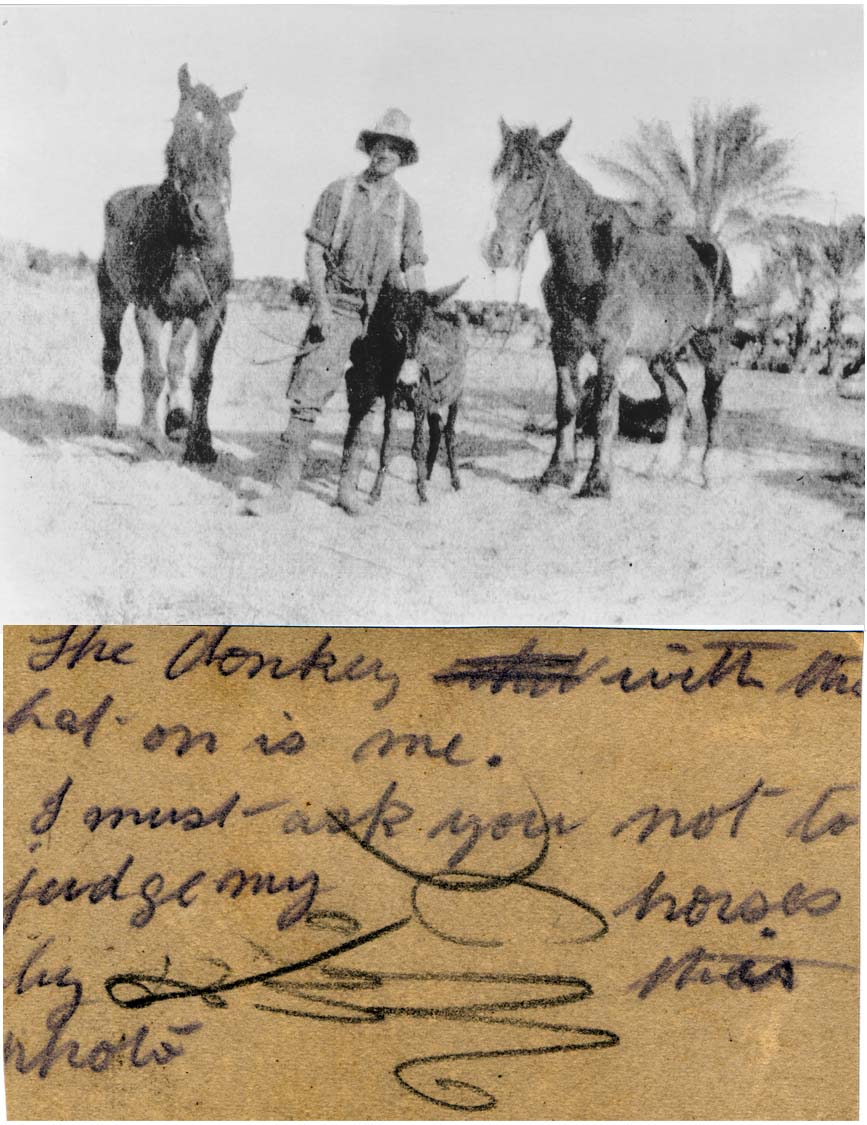 The donkey with the
hat on is me.
I must ask you not to
judge my horses
by this
photo